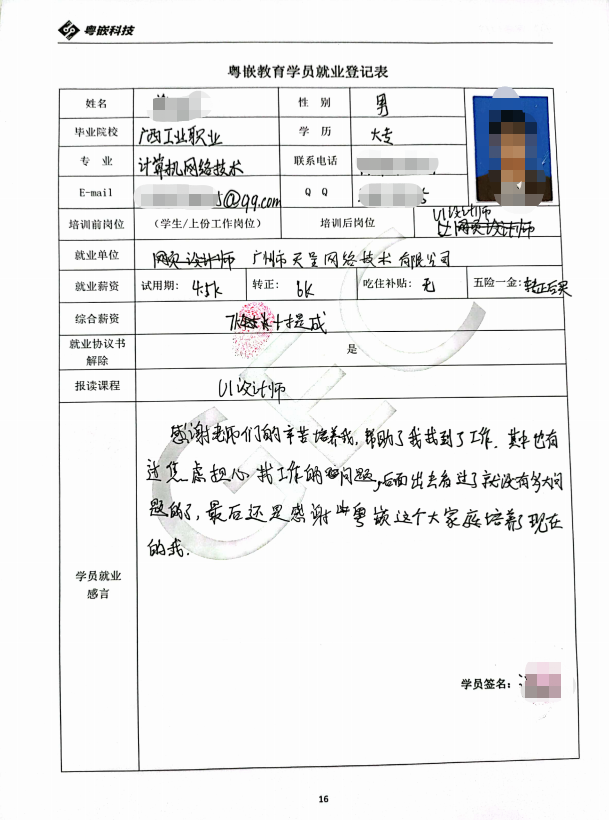 粤嵌科技
粤嵌教育学员就业登记表
姓名 性 别 男
毕业院校 广西工业职业 学 历 大专
专 业 计算机网络技术 联系电话
E-mail 5@qq.com Q Q 5
UI设计师
培训前岗位 (学生/上份工作岗位) 培训后岗位 网页设计师
就业单位 网页设计师 广州市天呈网络技术有限公司
就业薪资 试用期: 4.5k 转正: 6k 吃住补贴: 无 五险一金: 转正后买
综合薪资 +提成
就业协议书
解除 是
报读课程 UI设计师
GEC
感谢老师们的辛苦培养我,帮助了我找到了工作.其中也有
过焦虑担心找工作的问题,后面出去面过了就没有多大问
题的了,最后还是感谢粤嵌这个大家庭培养了现在
的我.
学员就业
感言
学员签名:
16